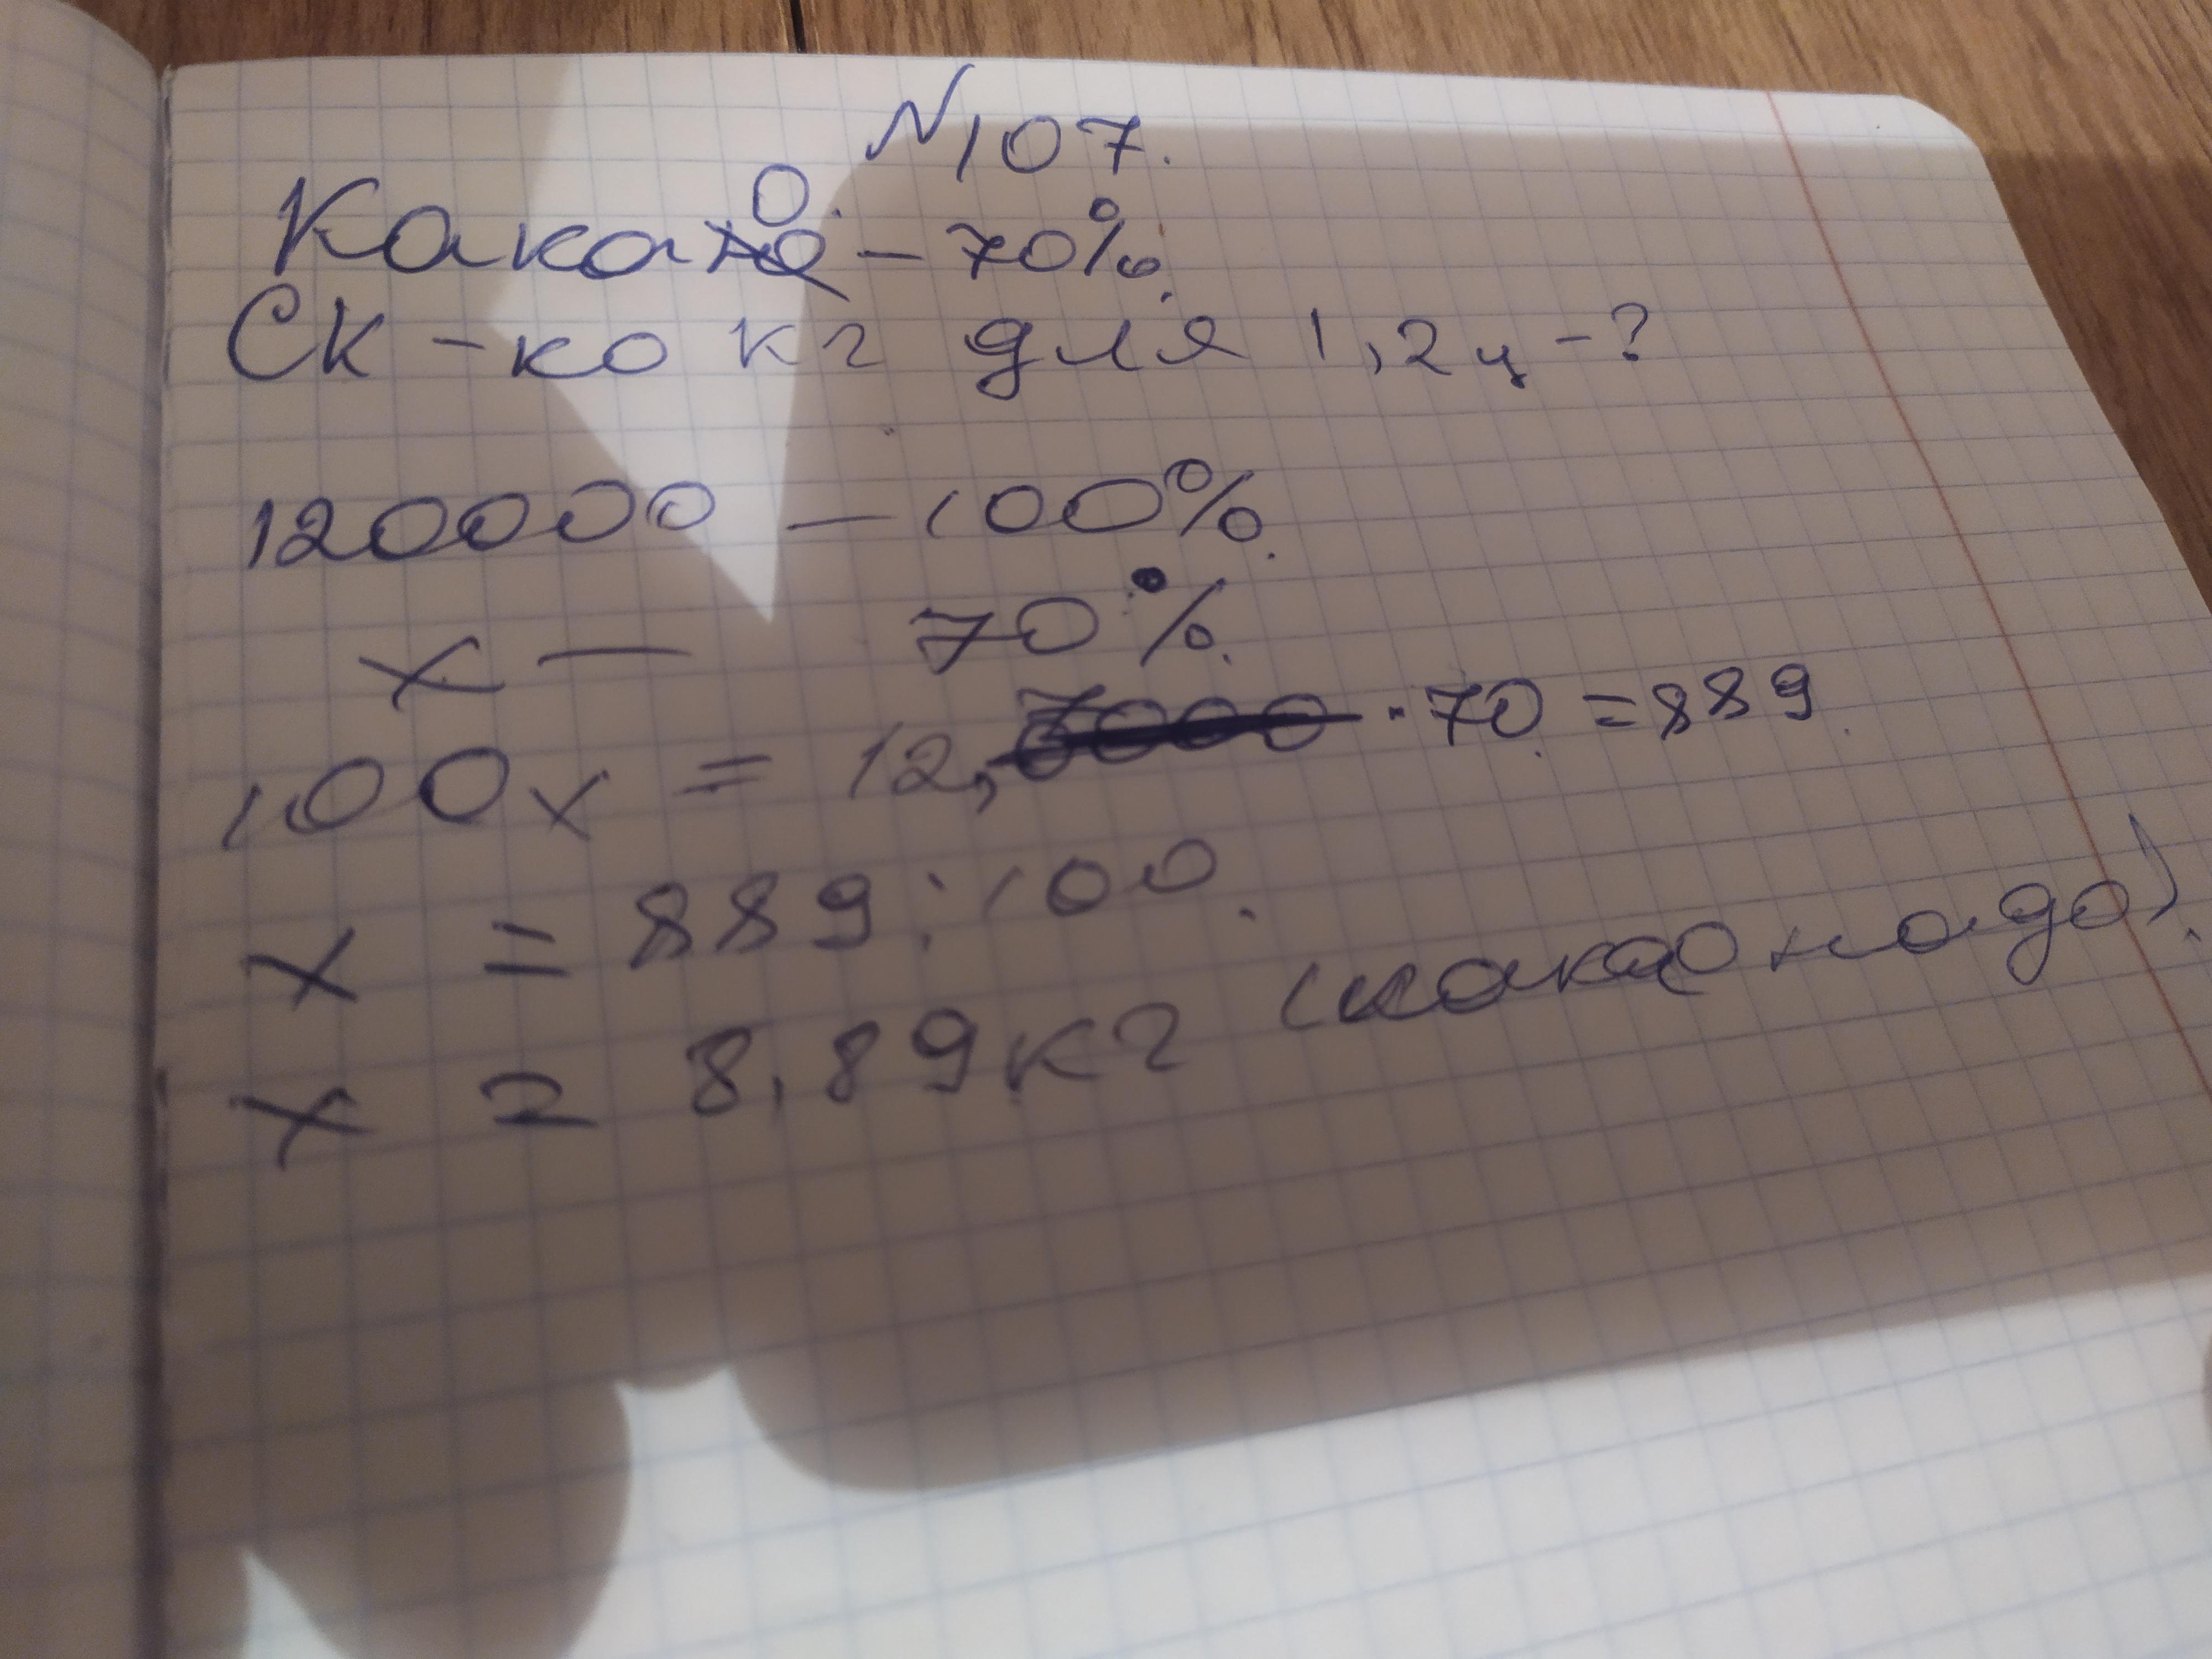 №107.
Какао. – 70%.
Ск-ко кг для 1,2ц – ?
120000 – 100%.
х – 70%.
100х = 12, · 70 = 889.
х = 889 : 100.
х = 8,89кг (какао надо).